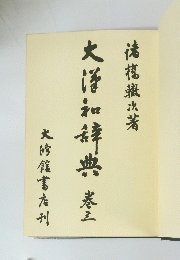 諸橋轍次著
大漢和辭典 卷三
大修館書店刊